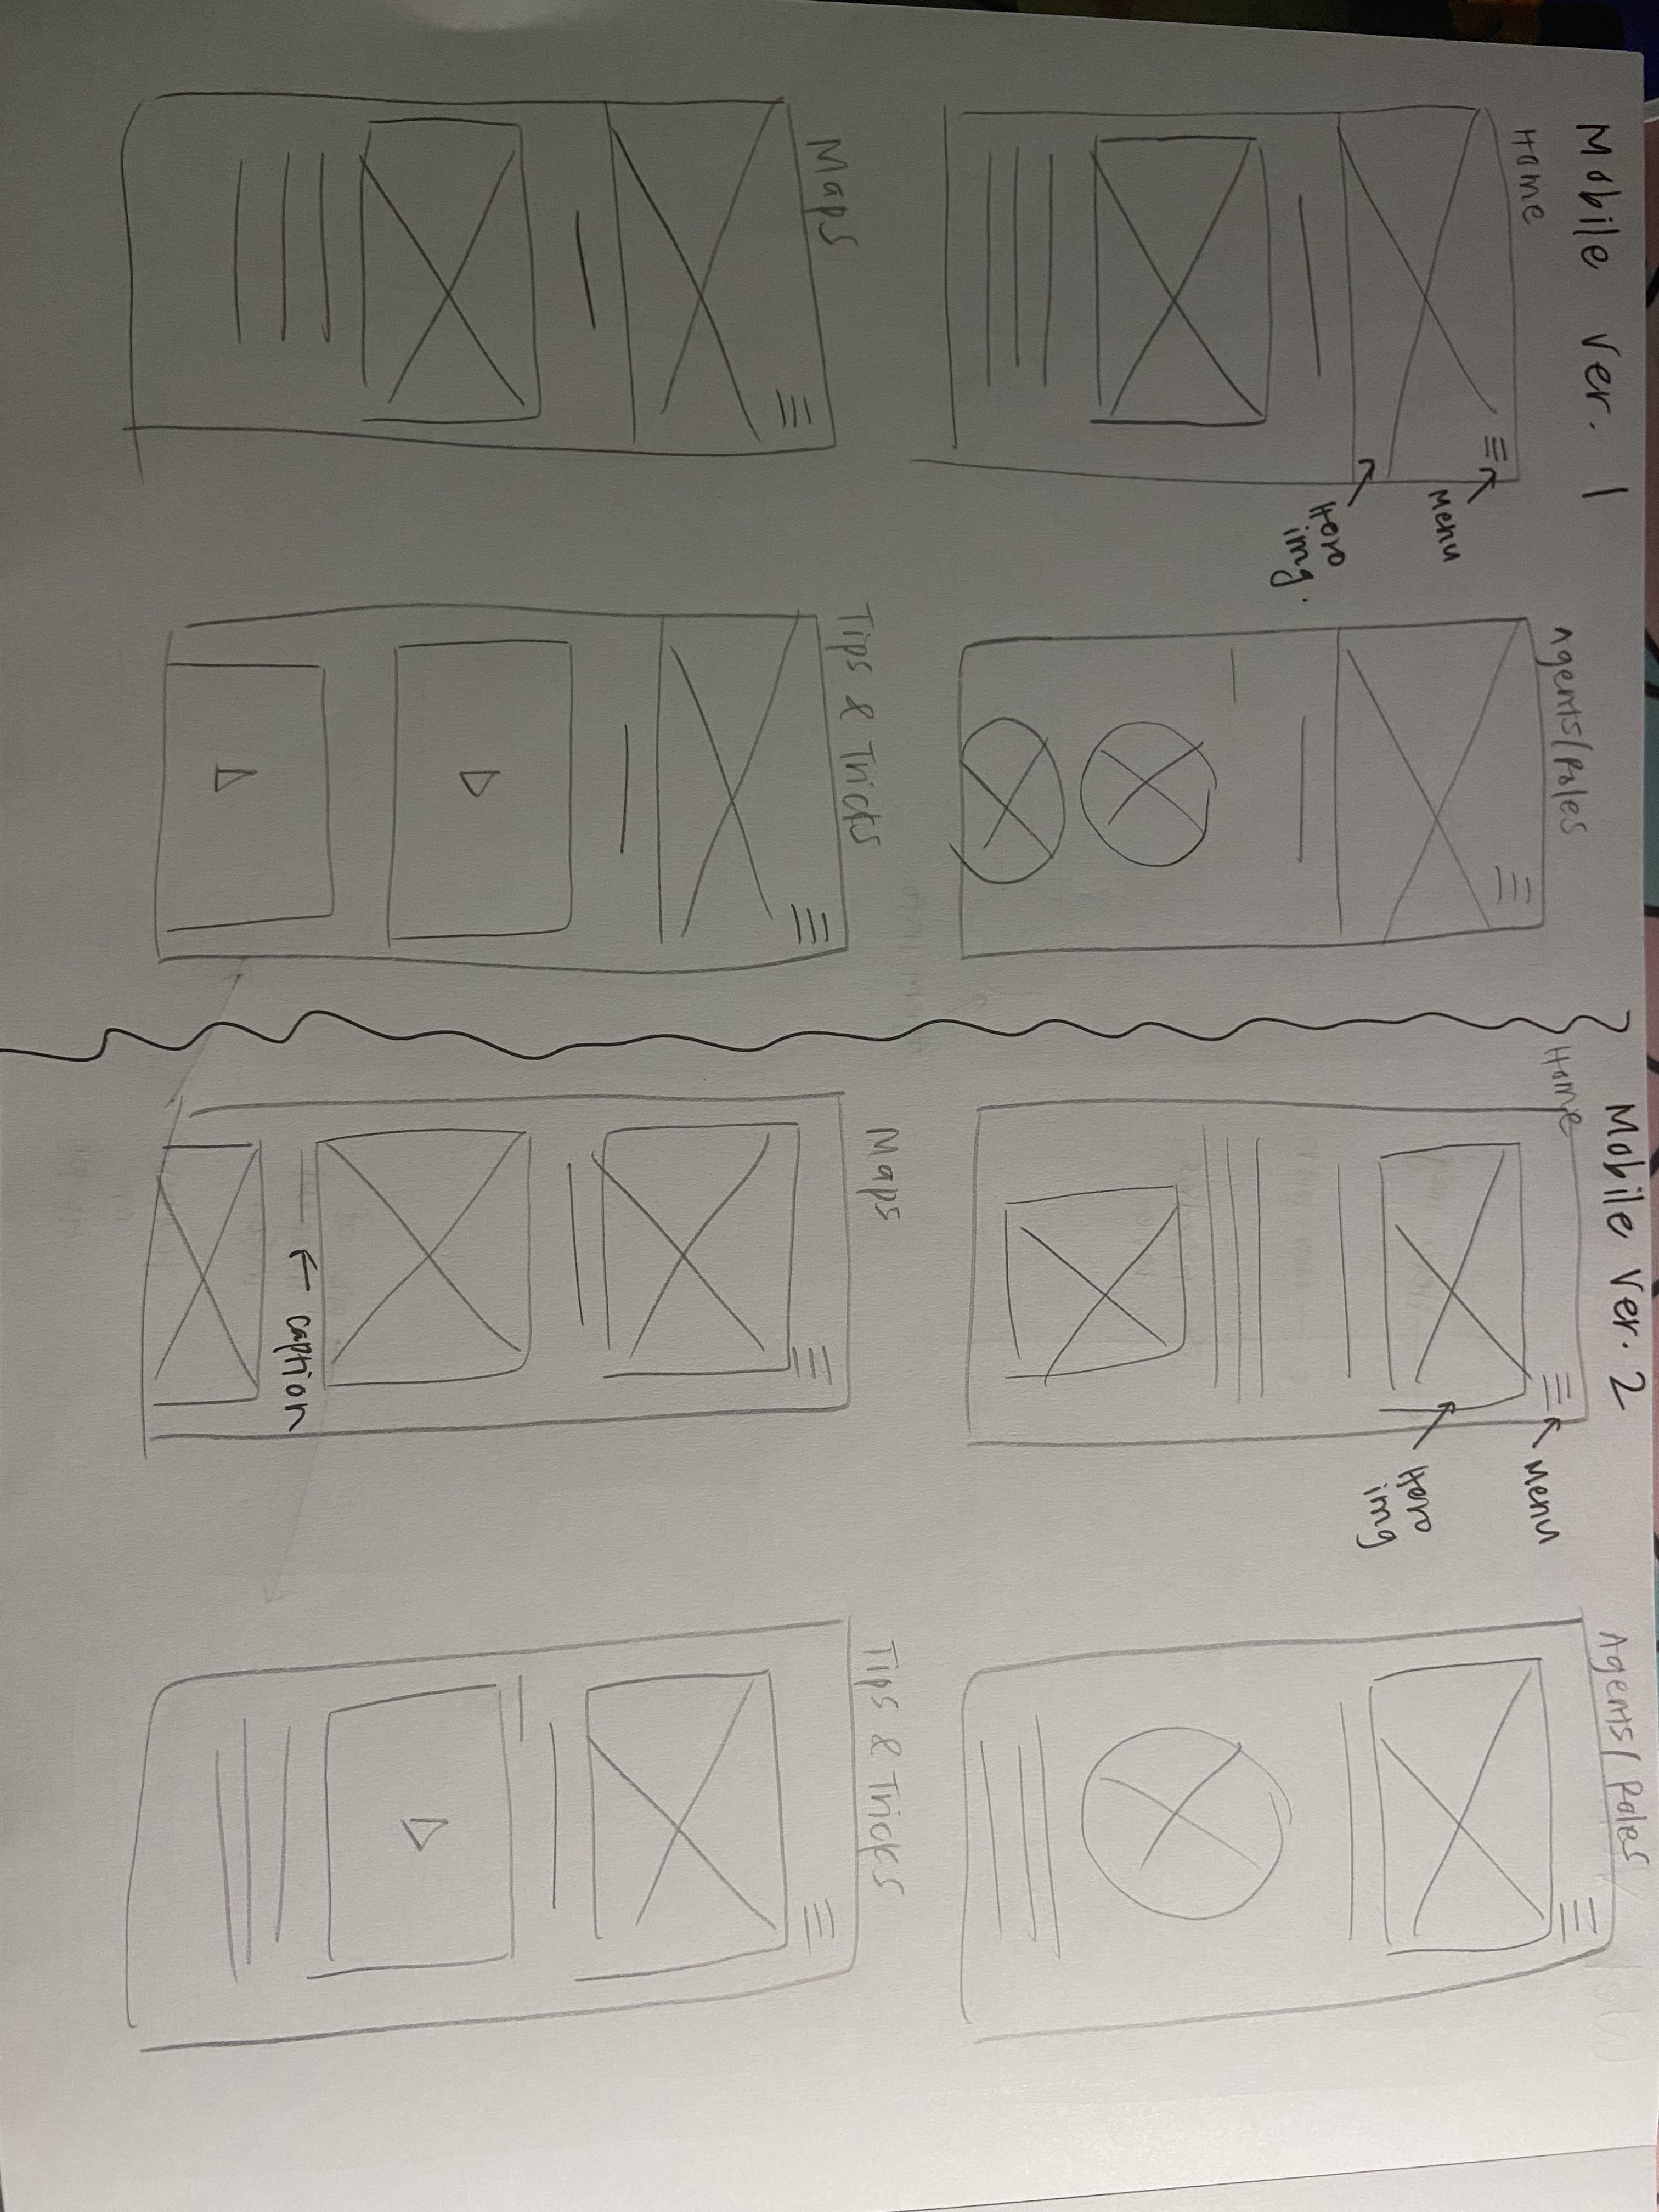 Mobile Ver. 1
Home
Menu
Hero
img.
Agents/Roles
Maps
Tips & Tricks
Mobile Ver. 2
Home
Menu
Hero
img
Agents/Roles
Maps
caption
Tips & Tricks